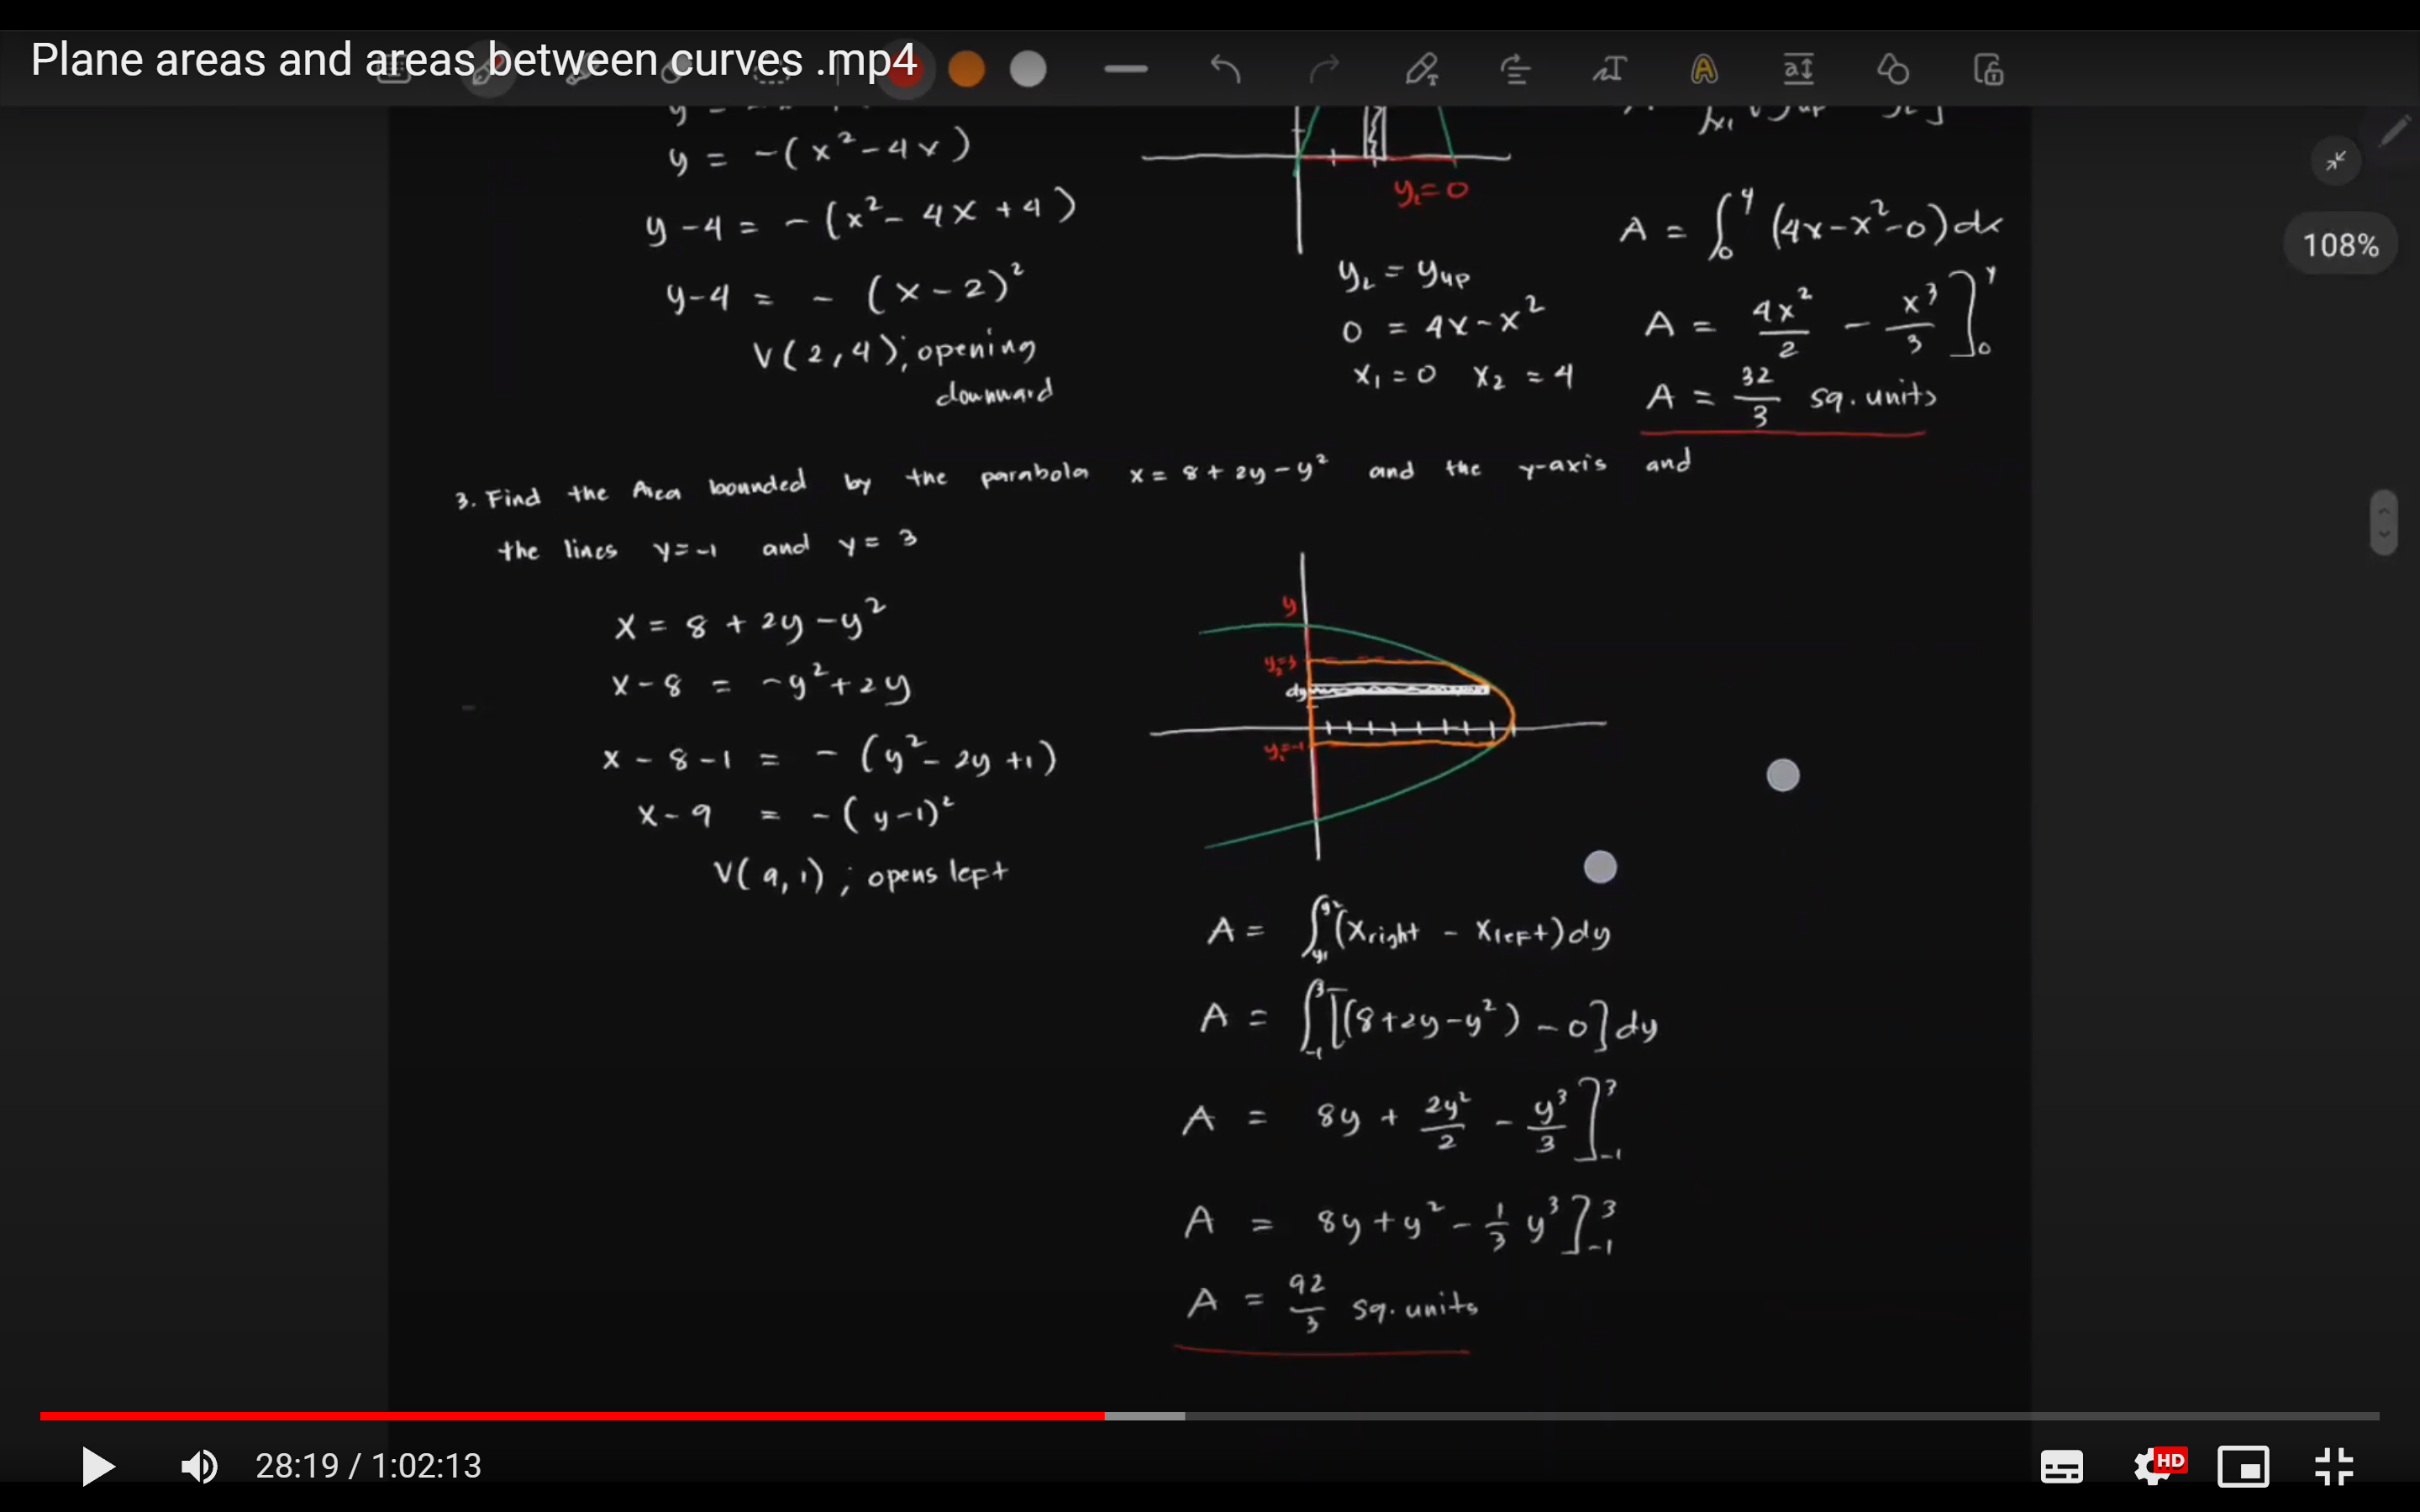 Plane areas and areas between curves .mp4
108%
y = -(x²-4x)
y-4 = -(x²-4x+4)
y-4 = -(x-2)²
V(2,4); opening
downward
y₂=0
y₂ = yup
0 = 4x-x²
x₁=0 x₂=4
A = ∫₀⁴ (4x-x²-0)dx
A = 4x²/2 - x³/3 ]₀⁴
A = 32/3 sq. units
3. Find the Area bounded by the parabola x = 8+2y-y² and the y-axis and
the lines y=-1 and y=3
x = 8+2y-y²
x-8 = -y²+2y
x-8-1 = -(y²-2y+1)
x-9 = -(y-1)²
V(9,1); opens left
y
y₂=3
dy
y₁=-1
A = ∫y₁^y₂ (xright - xleft)dy
A = ∫₋₁³ [(8+2y-y²)-0]dy
A = 8y + 2y²/2 - y³/3 ]₋₁³
A = 8y+y²-1/3 y³ ]₋₁³
A = 92/3 sq. units
28:19 / 1:02:13
HD